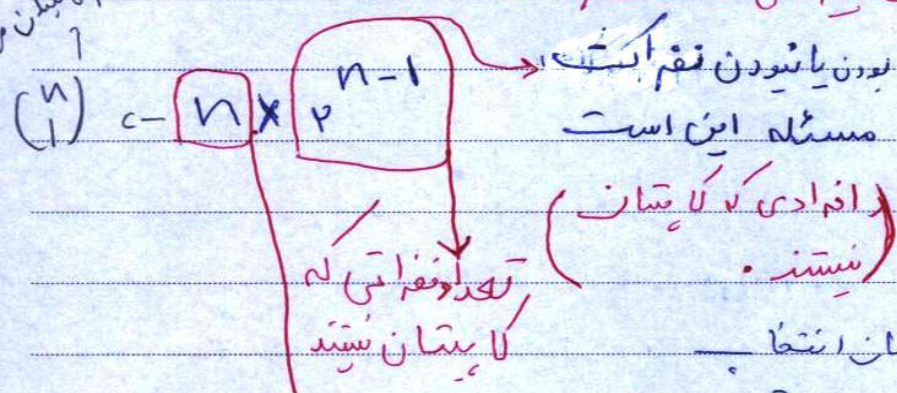 بودن یا نبودن نفرات
مسئله این است
(افرادی که کاپیتان
نیستند.)
(n 1) <- n × ۲^n-1
تعداد نفراتی که
کاپیتان نیستند
انتخاب